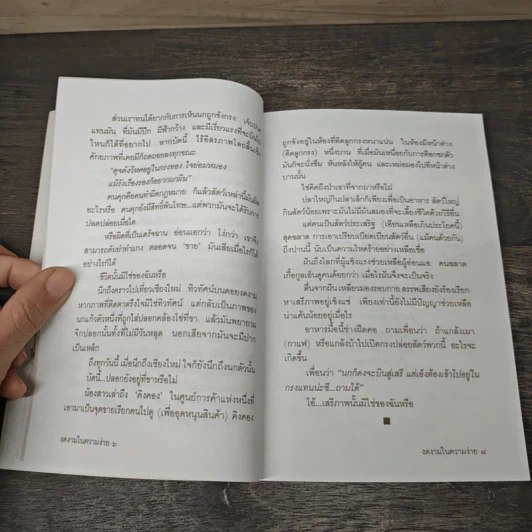 ส่วนเราทนได้ยากกับการเห็นนกถูกขังกรง
แทนมัน ที่มันมีปีก มีฟ้ากว้าง และมีเรี่ยวแรงที่จะบินไป
ไหนก็ได้ที่อยากไป หากบัดนี้ ไร้อิสรภาพโดยสิ้นเชิง
ศักยภาพที่เคยมีก็ถดถอยลงทุกขณะ
"ดุจดังวิหคอยู่ในกรงทอง ใจย่อมหมอง
แม้รังเรืองรองก็อยากผกผิน"
คนคุกคือคนทำผิดกฎหมาย ก็แล้วสัตว์เหล่านี้มันผิด
อะไรหรือ คนคุกยังมีสิทธิ์พ้นโทษ...แต่พวกมันจะได้รับการ
ปลดปล่อยเมื่อใด
หรือผิดที่เป็นเดรัจฉาน อ่อนแอกว่า โง่กว่า เขาจึง
สามารถคุมขังทำแกง ตลอดจน 'ขาย' มันเสียเมื่อไรก็ได้
อย่างไรก็ได้
ชีวิตนั้นมิใช่ของฉันหรือ
นึกถึงคราวไปเที่ยวเชียงใหม่ ทิวทัศน์บนดอยงดงาม
หากภาพที่ติดตาตรึงใจมิใช่ทิวทัศน์ แต่กลับเป็นภาพของ
นกแก้วตัวหนึ่งที่ถูกใส่ปลอกคล้องโซ่ที่ขา แล้วมันพยายาม
จิกปลอกนั้นทั้งที่ไม่มีวันหลุด นอกเสียจากมันจะมีปาก
เป็นเหล็ก
ถึงทุกวันนี้ เมื่อนึกถึงเชียงใหม่ ใจก็ยังนึกถึงนกตัวนั้น
บัดนี้...ปลอกยังอยู่ที่ขาหรือไม่
น้องสาวเล่าถึง 'คิงคอง' ในศูนย์การค้าแห่งหนึ่งที่
เอามาเป็นจุดขายเรียกคนไปดู (เพื่ออุดหนุนสินค้า) คิงคอง
งดงามในความง่าย ๖
ถูกขังอยู่ในห้องที่ติดลูกกรงหนาแน่น ในห้องมีหน้าต่าง
(ติดลูกกรง) หนึ่งบาน ที่เมื่อมันเหนื่อยกับการตีอกชกตัว
มันก็จะนั่งซึม หันหลังให้ผู้คน และเหม่อมองไปที่หน้าต่าง
บานนั้น
ใช่คิดถึงป่าเขาที่จากมาหรือไม่
ปลาใหญ่กินปลาเล็กก็เพียงเพื่อเป็นอาหาร สัตว์ใหญ่
กินสัตว์น้อยเพราะมันไม่มีมันสมองที่จะเลี้ยงชีวิตด้วยวิธีอื่น
แต่คนเป็นสัตว์ประเสริฐ (เฮียนเหลือเกินประโยคนี้)
สุดฉลาด การเอาเปรียบเบียดเบียนสัตว์อื่น (แม้คนด้วยกัน)
ถึงปานนี้ นับเป็นความโหดร้ายอย่างเหลือเชื่อ
ฝันถึงโลกที่ผู้แข็งแรงช่วยเหลือผู้อ่อนแอ คนฉลาด
เกื้อกูลเอ็นดูคนด้อยกว่า เมื่อไรฝันจึงจะเป็นจริง
ตื่นจากฝัน เหลียวมองรอบกาย สรรพเสียงยังร้องเรียก
หาเสรีภาพอยู่เซ็งแซ่ เพียงเท่านี้ยังไม่มีปัญญาช่วยเหลือ
น่าแค้นน้อยอยู่เมื่อไร
อาหารมื้อนี้ชางผิดคอ ถามเพื่อนว่า ถ้าแกล้งเมา
(กาแฟ) หรือแกล้งบ้าไปเปิดกรงปล่อยสัตว์พวกนี้ อะไรจะ
เกิดขึ้น
เพื่อนว่า "นกก็คงจะบินสู่เสรี แต่เธ็งต้องเข้าไปอยู่ใน
กรงแทนน่ะซี...ถามได้"
โอ้...เสรีภาพนั้นมิใช่ของฉันหรือ
งดงามในความง่าย ๗